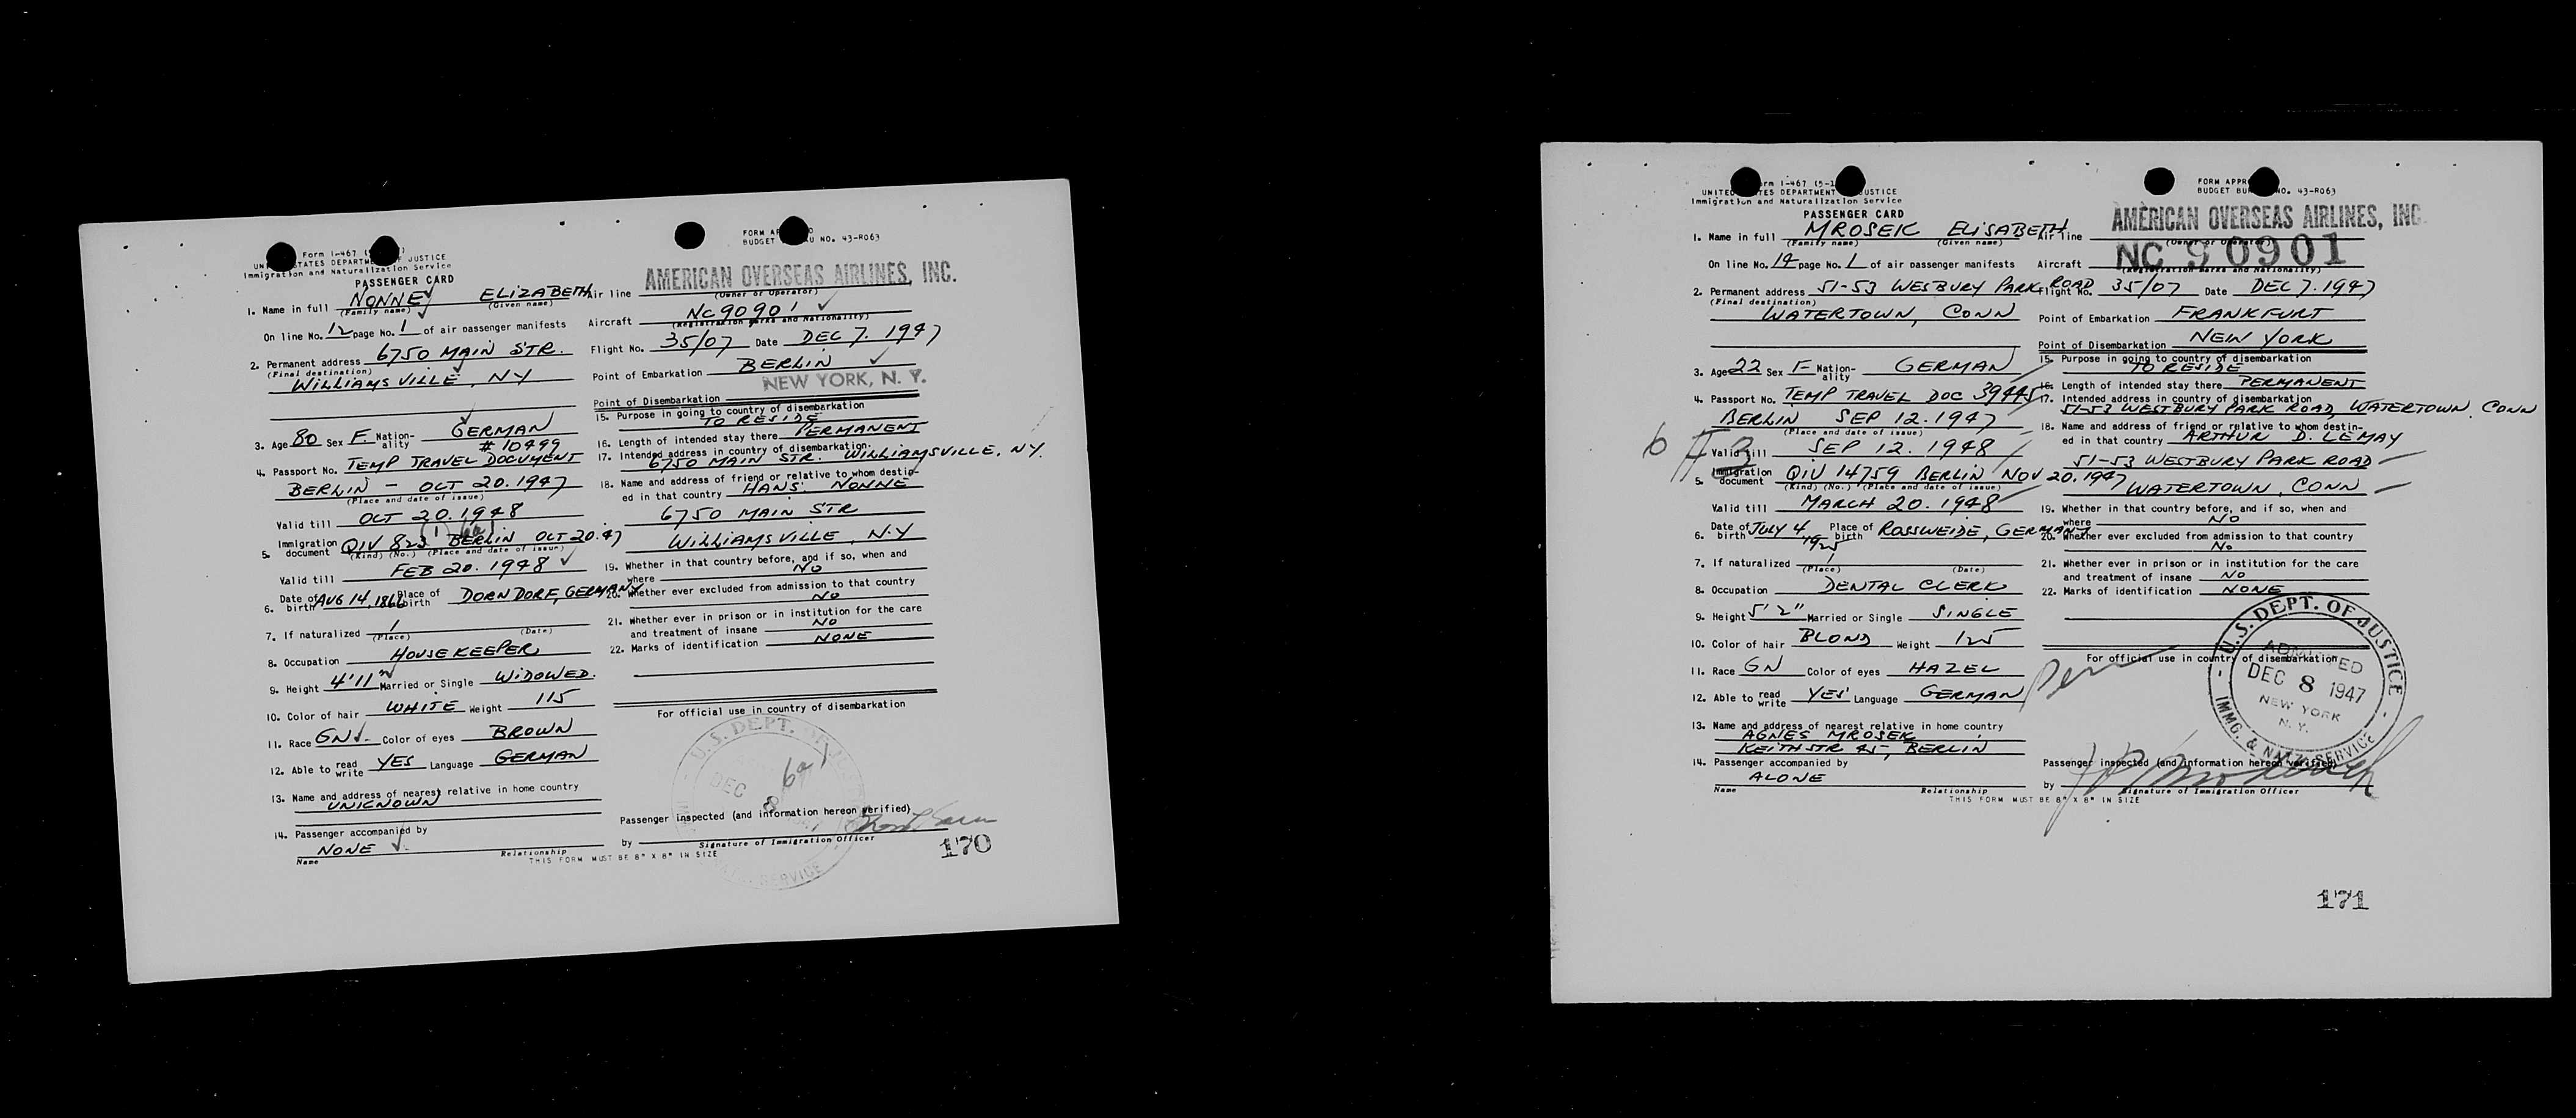 Form I-467
UNITED STATES DEPARTMENT OF JUSTICE
Immigration and Naturalization Service
PASSENGER CARD
1. Name in full NONNE ELIZABETH
(Family name) (Given name)
On line No. 12 page No. 1 of air passenger manifests
2. Permanent address 6750 MAIN STR.
(Final destination)
WILLIAMSVILLE, NY
3. Age 80 Sex F Nation-ality GERMAN
# 10499
4. Passport No. TEMP TRAVEL DOCUMENT
BERLIN - OCT 20. 1947
(Place and date of issue)
Valid till OCT 20. 1948
5. Immigration document QIV 823 BERLIN OCT 20. 47
(Kind) (No.) (Place and date of issue)
Valid till FEB 20. 1948
6. Date of birth AUG 14, 1866 Place of birth DORNDORF, GERMANY
7. If naturalized /
(Place) (Date)
8. Occupation HOUSEKEEPER
9. Height 4'11" Married or Single WIDOWED.
10. Color of hair WHITE Weight 115
11. Race GN Color of eyes BROWN
12. Able to read write YES Language GERMAN
13. Name and address of nearest relative in home country
UNKNOWN
14. Passenger accompanied by
NONE
Name Relationship
THIS FORM MUST BE 8" X 8" IN SIZE
FORM AP
BUDGET U NO. 43-R063
AMERICAN OVERSEAS AIRLINES, INC.
Air line
(Owner or Operator)
Aircraft NC90901
(Registration marks and Nationality)
Flight No. 35/07 Date DEC 7. 1947
Point of Embarkation BERLIN
NEW YORK, N. Y.
Point of Disembarkation
15. Purpose in going to country of disembarkation
TO RESIDE
16. Length of intended stay there PERMANENT
17. Intended address in country of disembarkation.
6750 MAIN STR. WILLIAMSVILLE, NY.
18. Name and address of friend or relative to whom destin-
ed in that country HANS NONNE
6750 MAIN STR
WILLIAMSVILLE, N.Y
19. Whether in that country before, and if so, when and
where NO
20. Whether ever excluded from admission to that country
NO
21. Whether ever in prison or in institution for the care
and treatment of insane NO
22. Marks of identification NONE
For official use in country of disembarkation
U.S. DEPT. OF JUSTICE
DEC 8
SERVICE
Passenger inspected (and information hereon verified)
by
Signature of Immigration Officer
170
Form I-467 (5-1
UNITED STATES DEPARTMENT JUSTICE
Immigration and Naturalization Service
PASSENGER CARD
1. Name in full MROSEK ELISABETH
(Family name) (Given name)
On line No. 14 page No. 1 of air passenger manifests
2. Permanent address 51-53 WESBURY PARK ROAD
(Final destination)
WATERTOWN, CONN
3. Age 22 Sex F Nation-ality GERMAN
4. Passport No. TEMP TRAVEL DOC 39445
BERLIN SEP 12. 1947
(Place and date of issue)
Valid till SEP 12. 1948
5. Immigration document QIV 14759 BERLIN NOV 20. 1947
(Kind) (No.) (Place and date of issue)
Valid till MARCH 20. 1948
6. Date of birth JULY 4, 1925 Place of birth ROSSWEIDE, GERMANY
7. If naturalized /
(Place) (Date)
8. Occupation DENTAL CLERK
9. Height 5'2" Married or Single SINGLE
10. Color of hair BLOND Weight 125
11. Race GN Color of eyes HAZEL
12. Able to read write YES Language GERMAN
13. Name and address of nearest relative in home country
AGNES MROSEK
KEITHSTR 45, BERLIN
14. Passenger accompanied by
ALONE
Name Relationship
THIS FORM MUST BE 8" X 8" IN SIZE
FORM APPR
BUDGET BU NO. 43-R063
AMERICAN OVERSEAS AIRLINES, INC.
Air line
(Owner or Operator)
Aircraft NC 90901
(Registration marks and Nationality)
Flight No. 35/07 Date DEC 7. 1947
Point of Embarkation FRANKFURT
Point of Disembarkation NEW YORK
15. Purpose in going to country of disembarkation
TO RESIDE
16. Length of intended stay there PERMANENT
17. Intended address in country of disembarkation
51-53 WESTBURY PARK ROAD, WATERTOWN, CONN
18. Name and address of friend or relative to whom destin-
ed in that country ARTHUR D. LEMAY
51-53 WESTBURY PARK ROAD
WATERTOWN, CONN
19. Whether in that country before, and if so, when and
where NO
20. Whether ever excluded from admission to that country
NO
21. Whether ever in prison or in institution for the care
and treatment of insane NO
22. Marks of identification NONE
For official use in country of disembarkation
U.S. DEPT. OF JUSTICE
ADMITTED
DEC 8 1947
NEW YORK
N. Y.
IMMG. & NATZ. SERVICE
Passenger inspected (and information hereon verified)
by
Signature of Immigration Officer
171